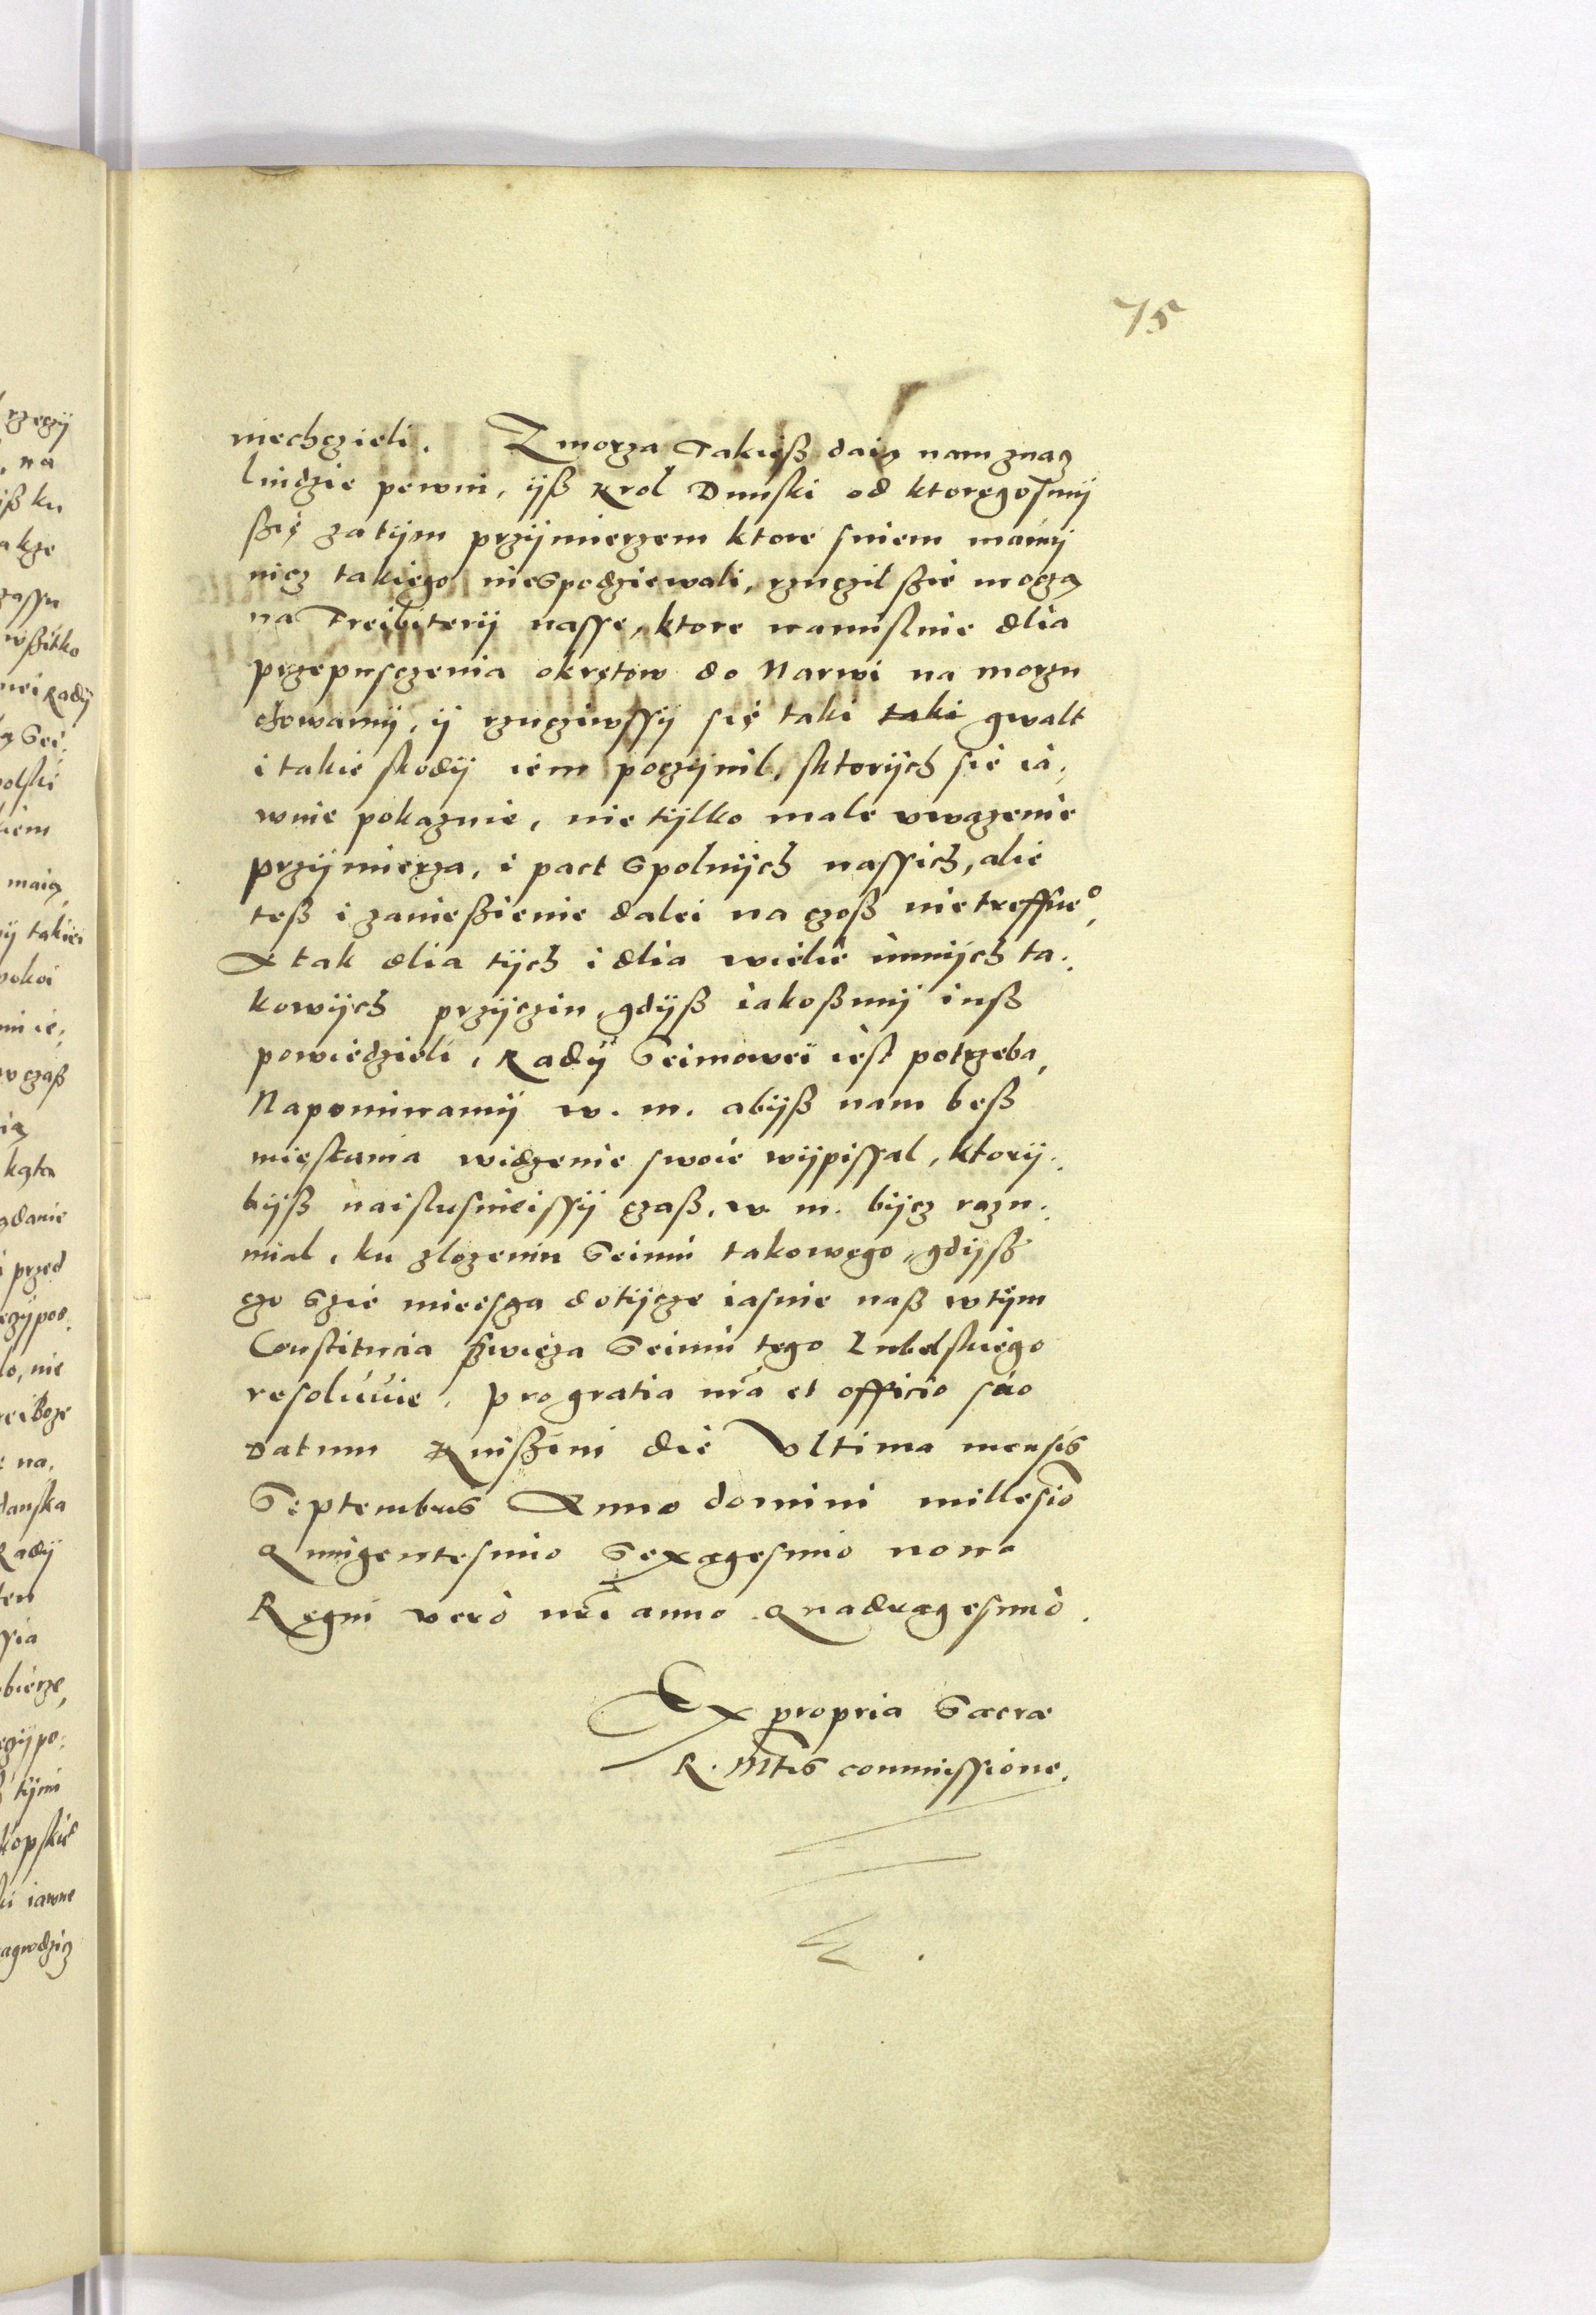 75
niechczieli. Z morza Takieß daią nam znacz
liudzie pewni, ijß Krol Dunski od ktoregosmij
ßię zatijm przijmierzem ktore sniem mamij
nicz takiego niespodziewali, rzuczil ßie moczą
na Freibiterij nasse, ktore namislnie dlia
przepusczenia okrętow do Narwi na morzu
chowamij, ij rzucziwssij się taki taki gwalt
i takie skodij iem poczijnil, sktorijch sie ia:
wnie pokazuie, nie tijlko male uwazenie
przijmierza, i pact spolnijch nassich, alie
teß i zanießienie dalei na czoß nietreffne°,
A tak dlia tijch i dlia wielie innijch ta:
kowijch przijczin, gdijß iakoßmij iuß
powiedzieli, Radij Seimowei iest potrzeba,
Napominamij w. m. abijß nam beß
mięskania widzenie swoie wijpissal, ktorij:
bijß naislusnieissij czaß, w. m. bijcz rozu:
mial, ku zlozeniu Seimu takowego, gdijsß
czo szie miescza dotijcze iasnie naß wtijm
Constitucia ßwieza Seimu tego Lubelskiego
resoluuie. pro gratia nra et officio suo
Datum Knißini die Ultima mensis
Septembris Anno domini millesio
Quingentesimo Sexagesimo nono
Regni vero nri anno Quadragesimo.
Ex propria Sacrae
R. Mtis commissione.